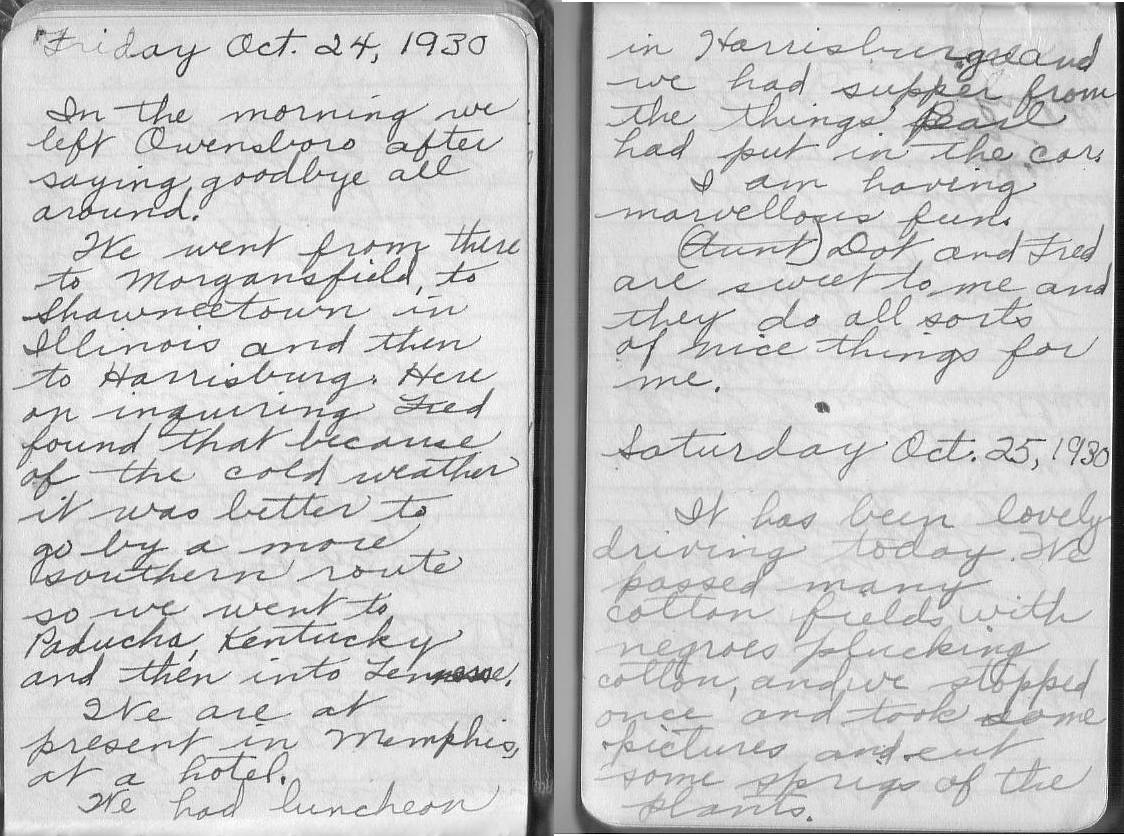 Friday Oct. 24, 1930
In the morning we
left Owensboro after
saying goodbye all
around.
We went from there
to Morgansfield, to
Shawneetown in
Illinois and then
to Harrisburg. Here
on inquiring Fred
found that because
of the cold weather
it was better to
go by a more
southern route
so we went to
Paducha, Kentucky
and then into Tennesse.
We are at
present in Memphis,
at a hotel.
We had luncheon
in Harrisburg and
we had supper from
the things Pearl
had put in the car.
I am having
marvellous fun.
(Aunt) Dot and Fred
are sweet to me and
they do all sorts
of nice things for
me.
Saturday Oct. 25, 1930
It has been lovely
driving today. We
passed many
cotton fields with
negroes plucking
cotton, and we stopped
once and took some
pictures and cut
some sprigs of the
plants.